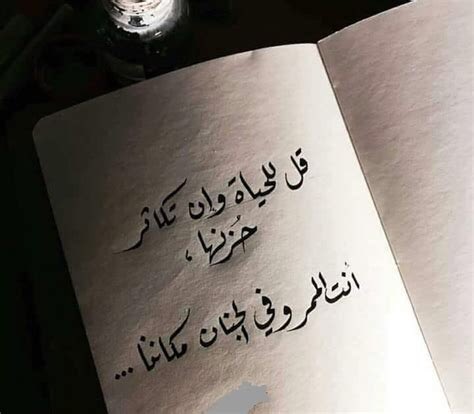 قل للحياة وإن تكاثر
حُزنها ،
أنت الممر وفي الجنان مكاننا ...